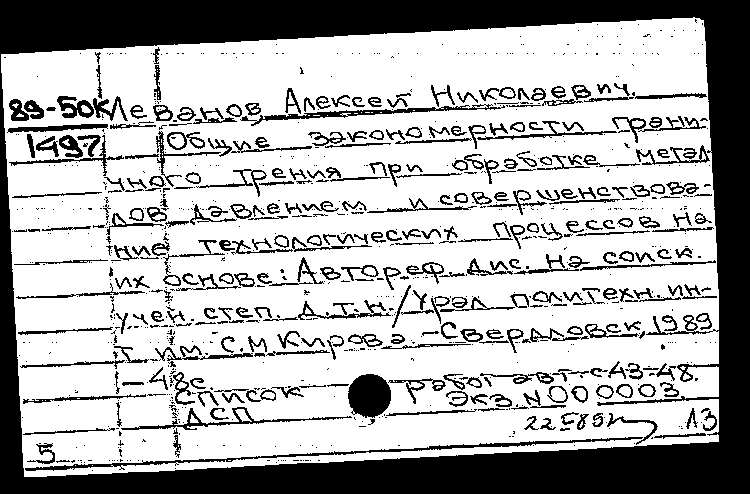 89-50К Леванов Алексей Николаевич.
1497 Общие закономерности грани-
чного трения при обработке метал-
лов давлением и совершенствова-
ние технологических процессов на
их основе: Автореф. дис. на соиск.
учен. степ. д.т.н./Урал политехн. ин-
т им. С.М Кирова.-Свердловск, 1989
-48с.
Список работ авт.: с 43-48.
ДСП Экз. N 000003.
13
5